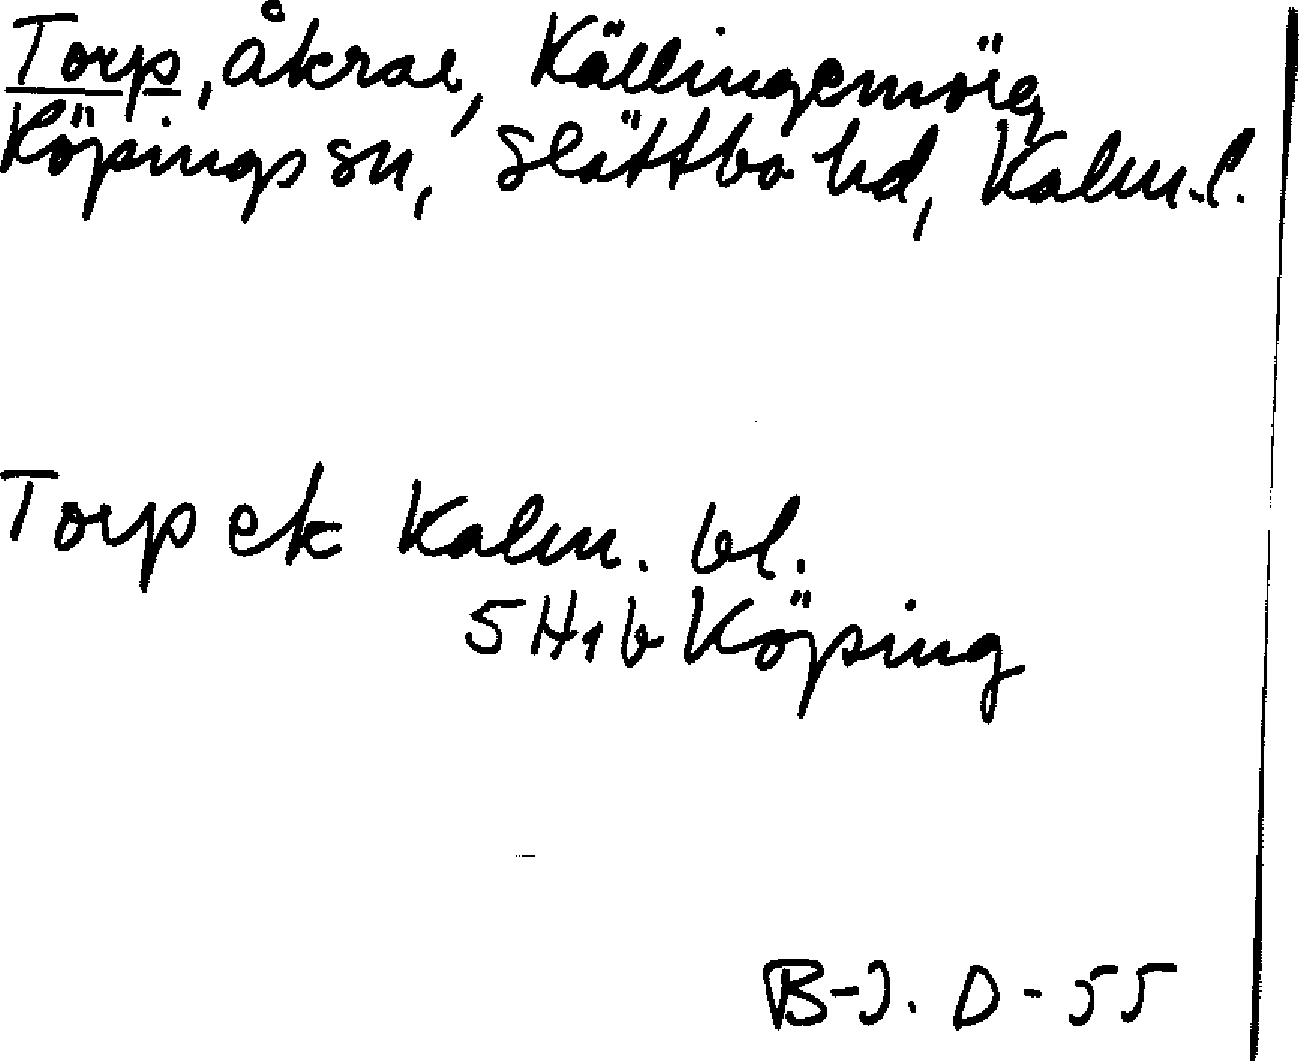 Torp, åkrar, Källingemöre,
Köpings sn, Slättbo hd, Kalm. l.
Torp ek Kalm. bl.
5H1b Köping
B-J. D-55